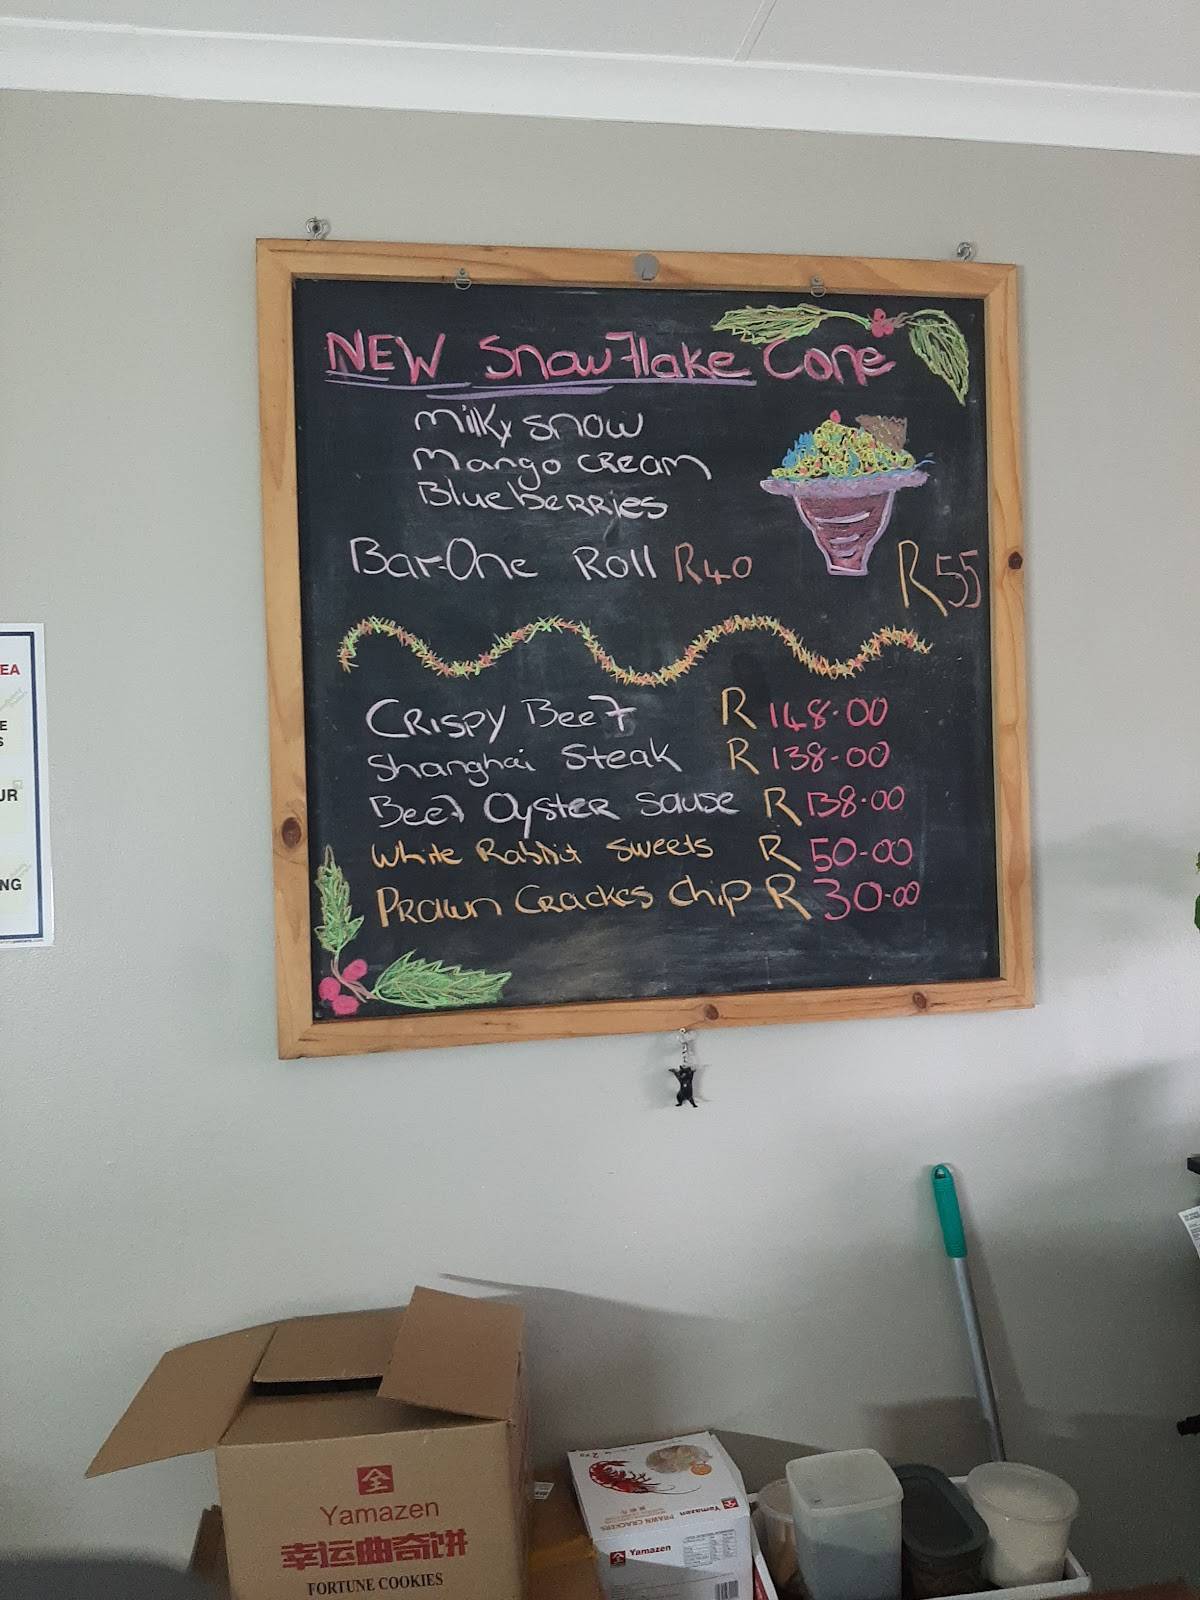 NEW Snowflake Cone
Milky snow
Mango cream
Blueberries
Bar-One Roll R40
R55
Crispy Beef R 148.00
Shanghai Steak R 138.00
Beef Oyster Sause R 138.00
White Rabbit Sweets R 50.00
Prawn Crackes Chip R 30.00
EA
E
S
UR
NG
全
Yamazen
幸运曲奇饼
FORTUNE COOKIES
PRAWN CRACKERS
Yamazen
全 Yamazen